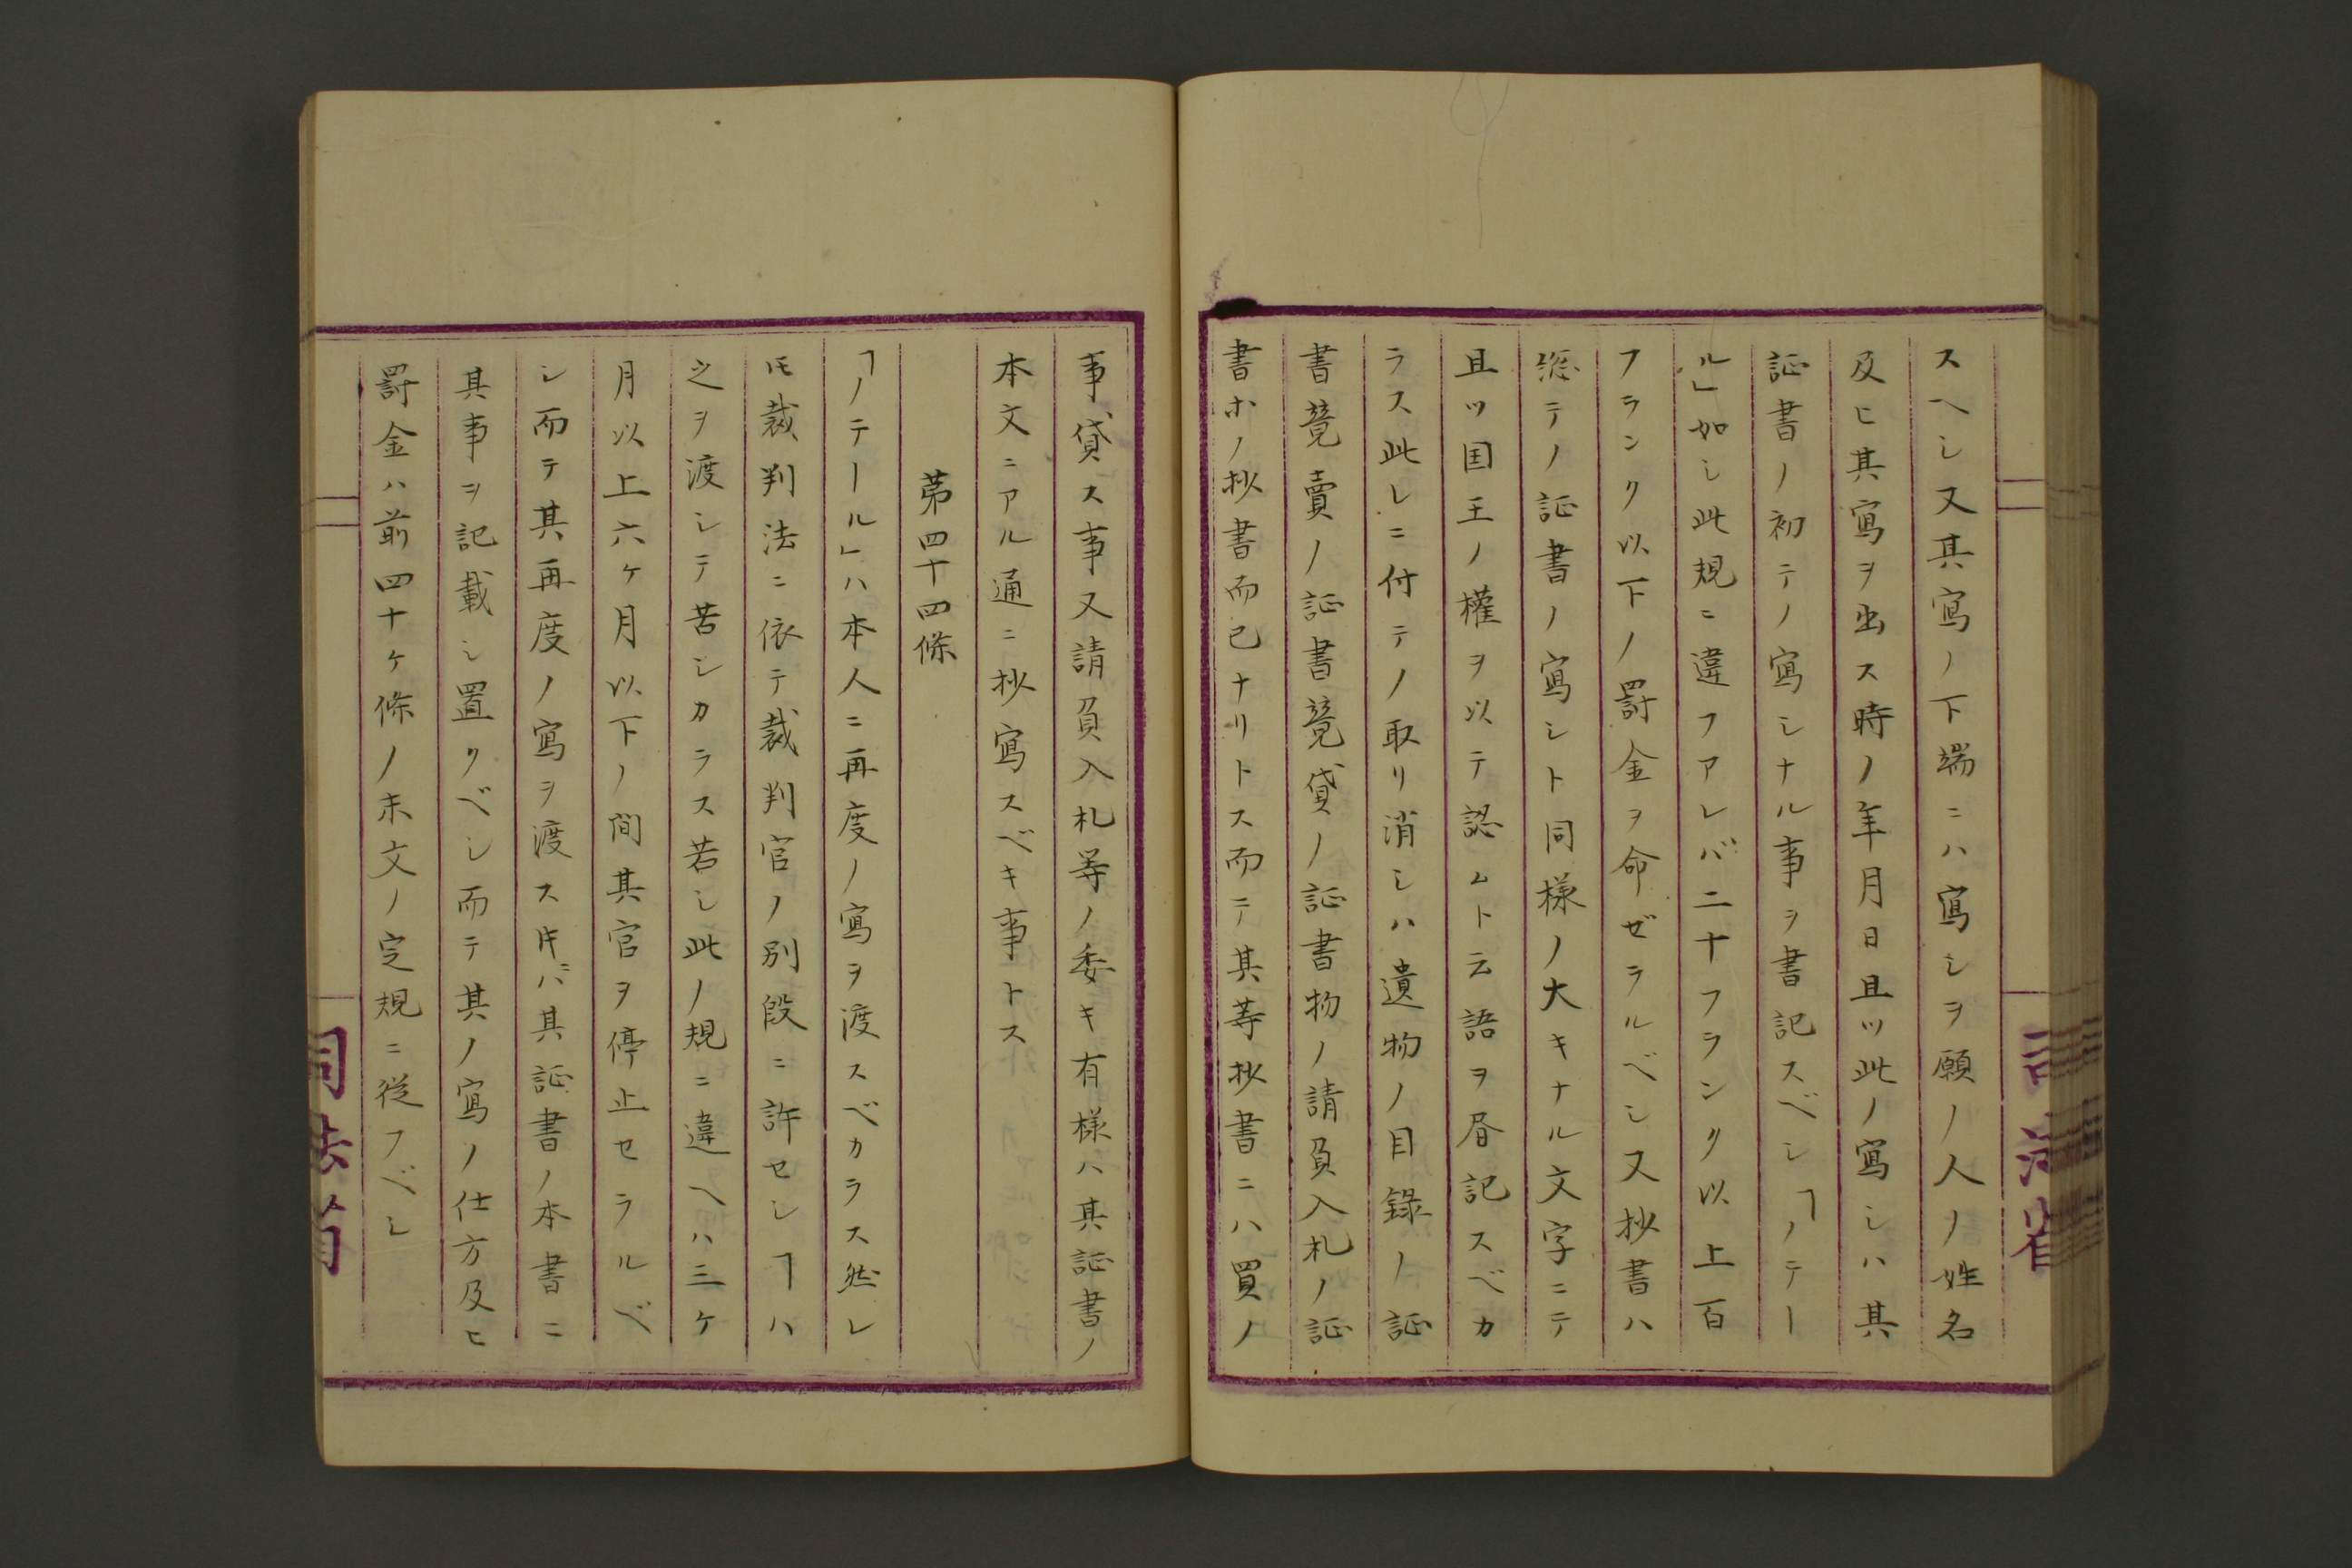 スヘシ又其寫ノ下端ニハ寫シヲ願ノ人ノ姓名
及ヒ其寫ヲ出ス時ノ年月日且ツ此ノ寫シハ其
証書ノ初テノ寫シナル事ヲ書記スベシ「ノテー
ル」如シ此規ニ違フアレバ二十フランク以上百
フランク以下ノ罰金ヲ命ゼラルベシ又抄書ハ
総テノ証書ノ寫シト同様ノ大キナル文字ニテ
且ツ国王ノ權ヲ以テ認ムト云語ヲ 記スベカ
ラス此レニ付テノ取リ消シハ遺物ノ目録ノ証
書競賣ノ証書競貸ノ証書物ノ請負入札ノ証
書ホノ抄書而已ナリトス而テ其等抄書ニハ買ノ
事貸ス事又請負入札等ノ委キ有様ハ其証書ノ
本文ニアル通ニ抄寫スベキ事トス
第四十四條
「ノテール」ハ本人ニ再度ノ寫ヲ渡スベカラス然レ
𪜈裁判法ニ依テ裁判官ノ別段ニ許セシヿハ
之ヲ渡シテ苦シカラス若シ此ノ規ニ違ヘハ三ケ
月以上六ケ月以下ノ間其官ヲ停止セラルベ
シ而テ其再度ノ寫ヲ渡ス其証書ノ本書ニ
其事ヲ記載シ置クベシ而テ其ノ寫ノ仕方及ヒ
罰金ハ前四十ケ條ノ末文ノ定規ニ從フベシ
司法省